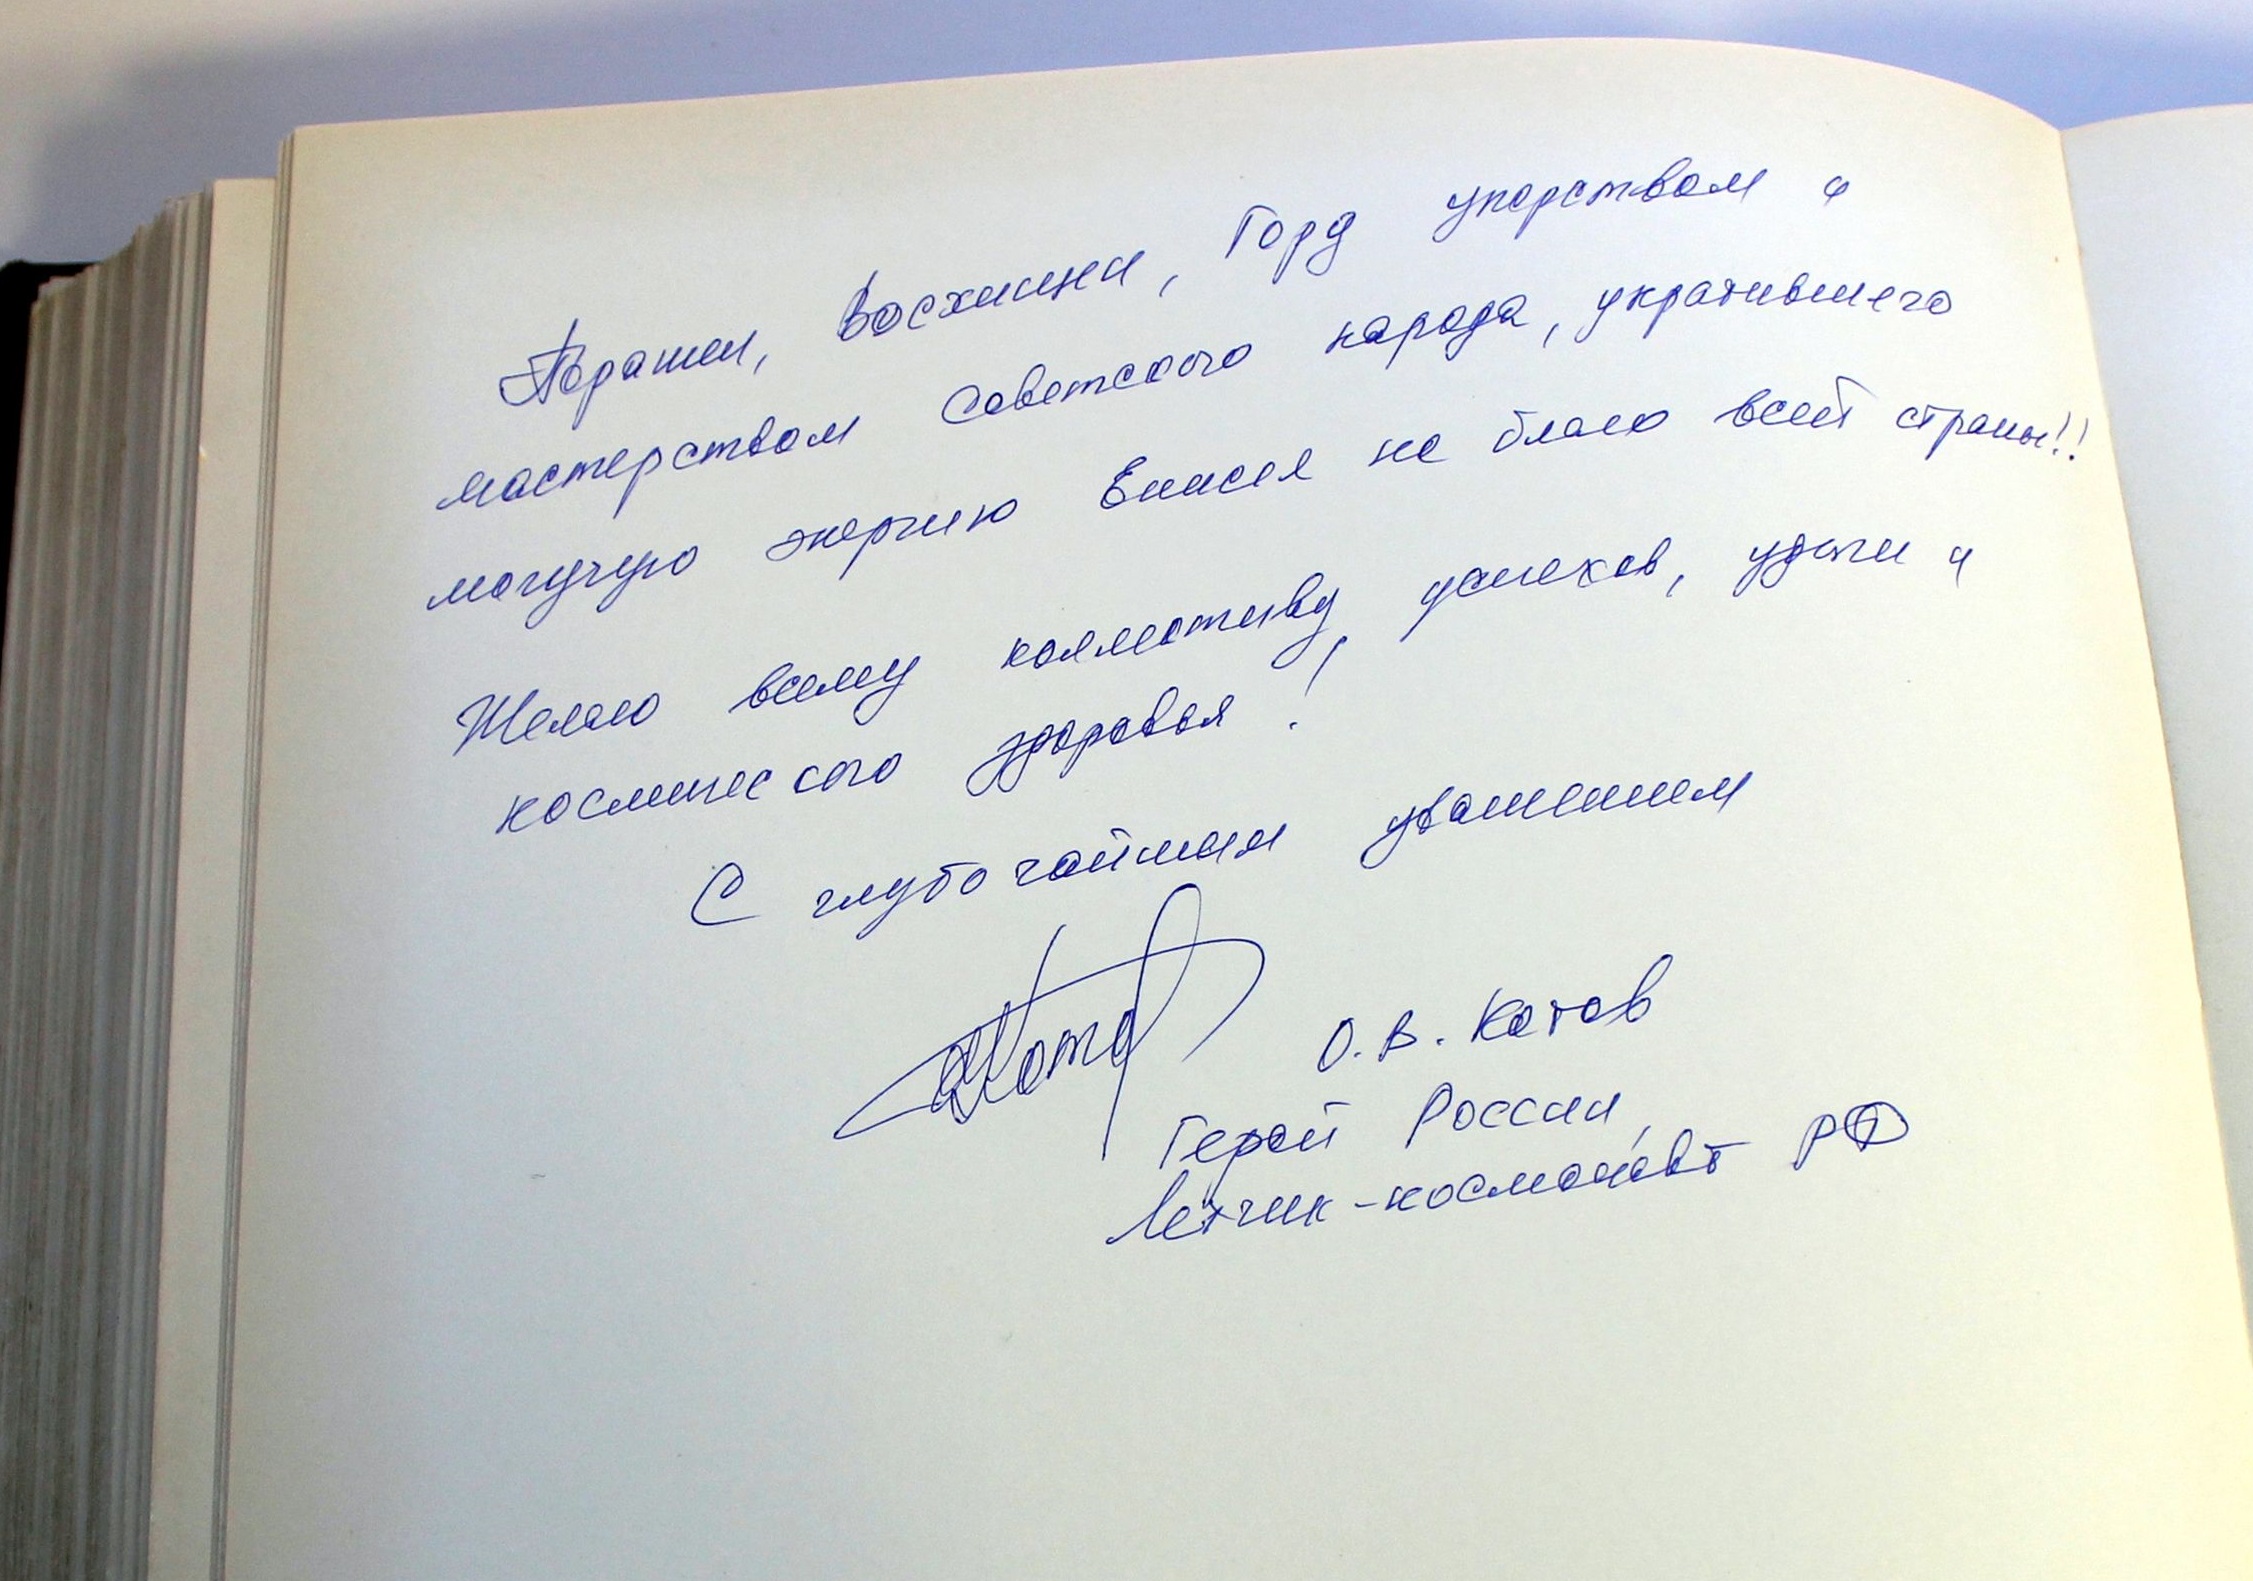 Поражен, Восхищен, Горд упорством и
мастерством Советского народа, укратившего
могучую энергию Енисея на благо всей страны!!
Желаю всему коллективу, успехов, удачи и
космического здоровья!
С глубочайшим уважением
О.В. Котов
Герой России,
Летчик-космонавт РФ